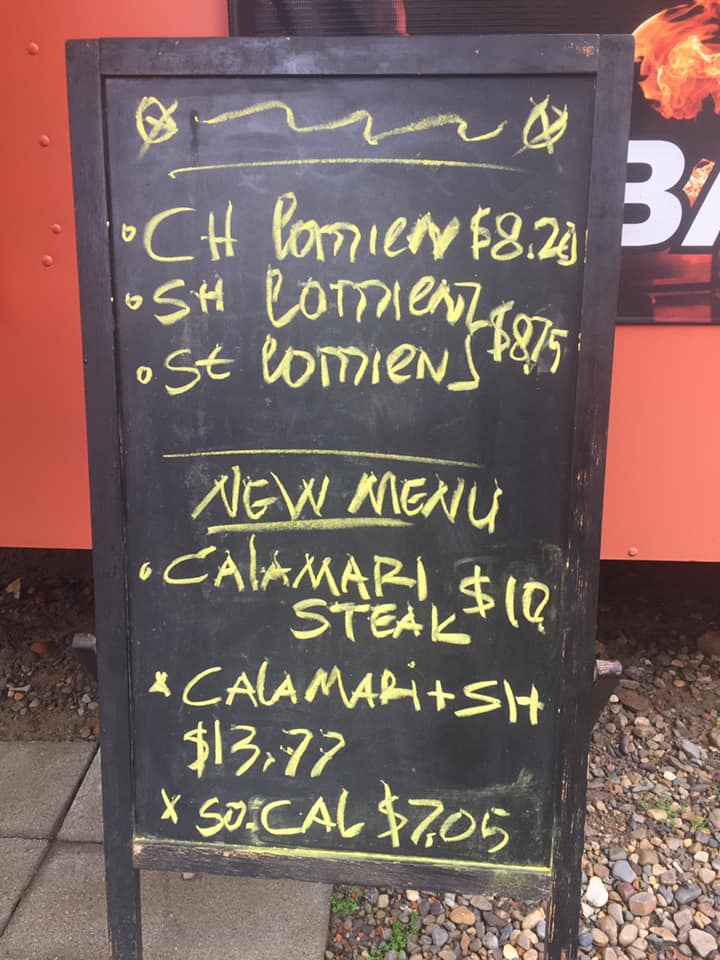 CH lomien $8.20
SH lomien
St lomien $8,75
NEW MENU
CALAMARI $10
STEAK
CALAMARI + SH
$13,77
SO.CAL $7,05
BA